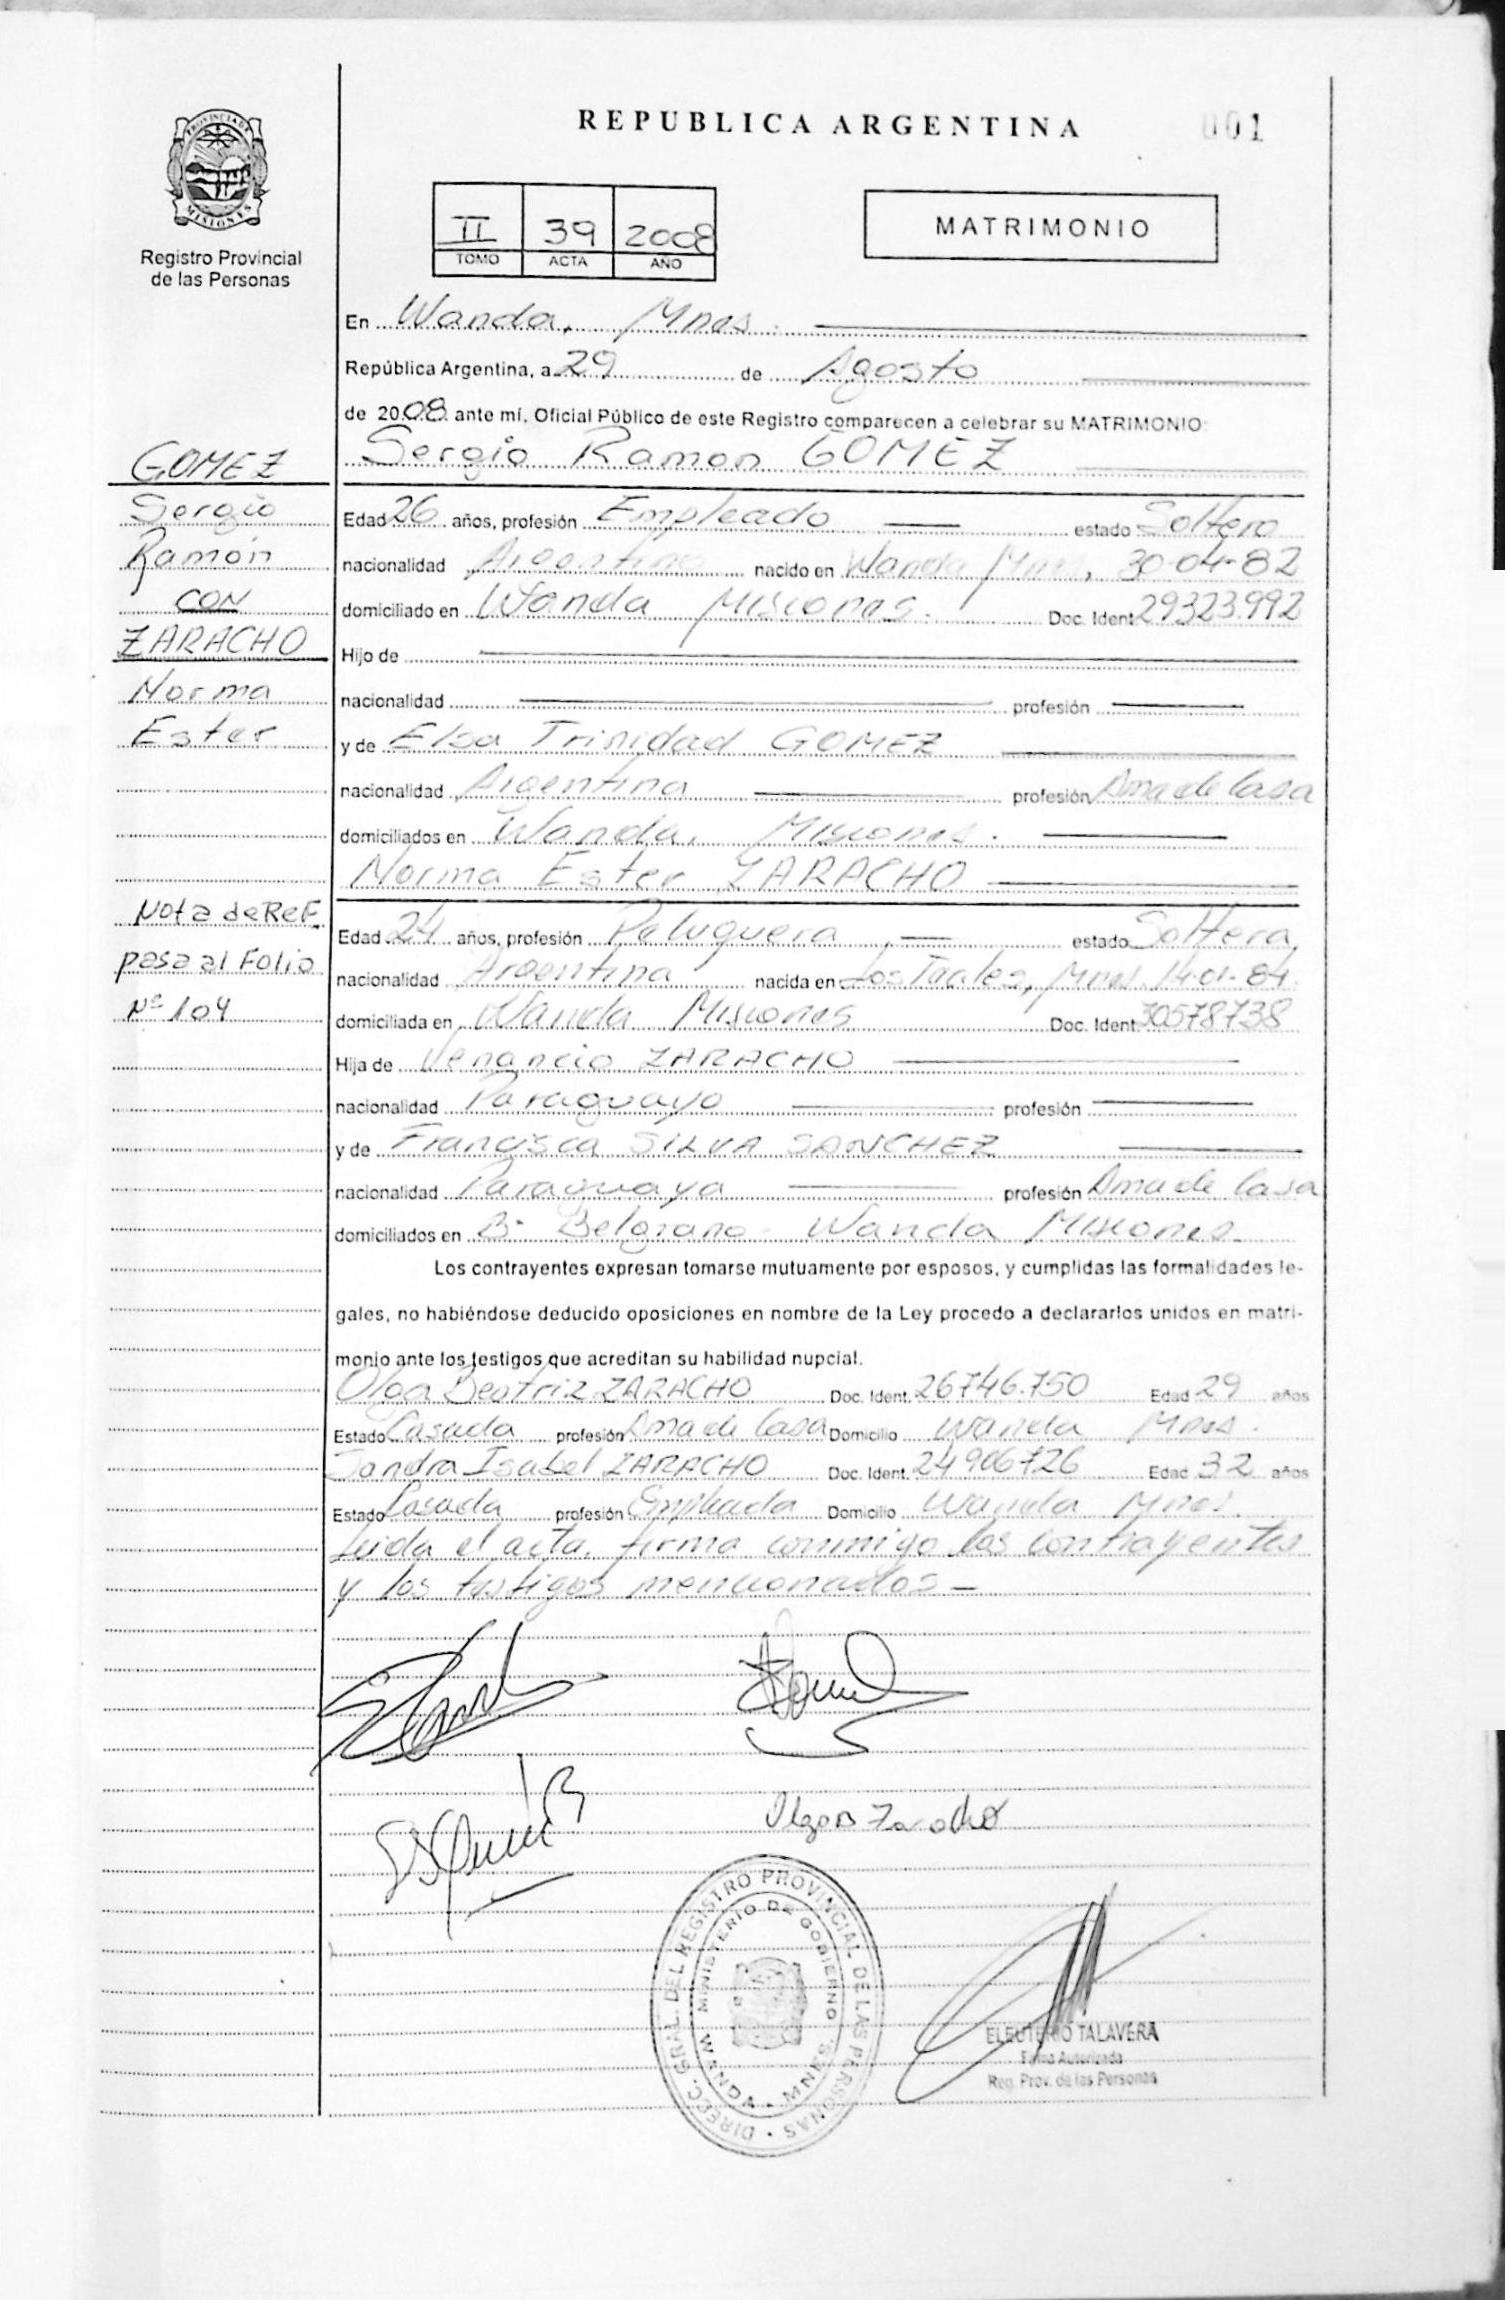 REPUBLICA ARGENTINA
001
PROVINCIA DE
MISIONES
Registro Provincial
de las Personas
II 39 2008
TOMO ACTA AÑO
MATRIMONIO
En Wanda, Mnes.
República Argentina, a 29 de Agosto
de 2008 ante mí, Oficial Público de este Registro comparecen a celebrar su MATRIMONIO:
Sergio Ramon GOMEZ
GOMEZ
Sergio
Ramón
CON
ZARACHO
Norma
Ester
Nota de Ref.
pasa al Folio
Nº 104
Edad 26 años, profesión Empleado estado Soltero
nacionalidad Argentino nacido en Wanda Mnes, 30-04-82
domiciliado en Wanda Misiones. Doc. Ident. 29323.992
Hijo de
nacionalidad profesión
y de Elsa Trinidad GOMEZ
nacionalidad Argentina profesión Ama de Casa
domiciliados en Wanda, Misiones.
Norma Ester ZARACHO
Edad 24 años, profesión Peluquera estado Soltera,
nacionalidad Argentina nacida en Mnes. 14-01-84.
domiciliada en Wanda Misiones Doc. Ident. 30578738
Hija de Venancio ZARACHO
nacionalidad Paraguayo profesión
y de Francisca SILVA SANCHEZ
nacionalidad Paraguaya profesión Ama de Casa
domiciliados en Bº Belgrano Wanda Misiones.
Los contrayentes expresan tomarse mutuamente por esposos, y cumplidas las formalidades le-
gales, no habiéndose deducido oposiciones en nombre de la Ley procedo a declararlos unidos en matri-
monio ante los testigos que acreditan su habilidad nupcial.
Olga Beatriz ZARACHO Doc. Ident. 26746.750 Edad 29 años
Estado Casada profesión Ama de Casa Domicilio Wanda Mnes.
Sandra Isabel ZARACHO Doc. Ident. 24906726 Edad 32 años
Estado Casada profesión Empleada Domicilio Wanda Mnes.
Leida el acta, firma conmigo los contrayentes
y los testigos mencionados
Olga B Zaracho
DIRECC. GRAL. DEL REGISTRO PROVINCIAL DE LAS PERSONAS
MINISTERIO DE GOBIERNO
WANDA MNES.
ELEUTERIO TALAVERA
Firma Autorizada
Reg. Prov. de las Personas